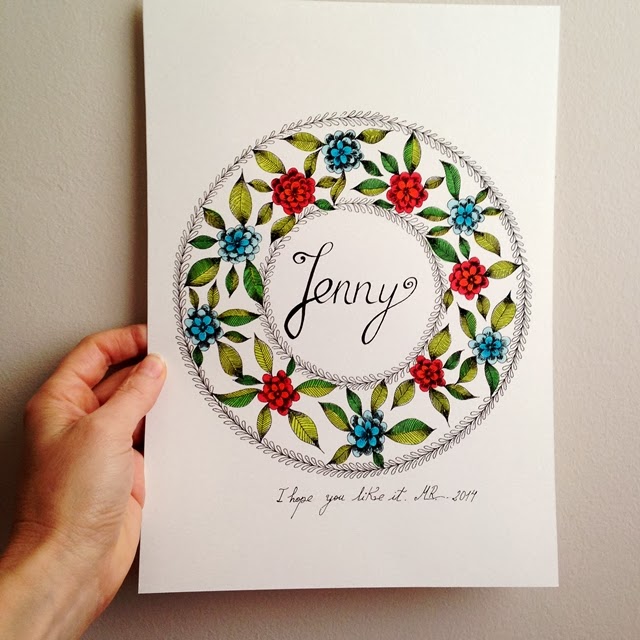 Jenny
I hope you like it. MR. 2014